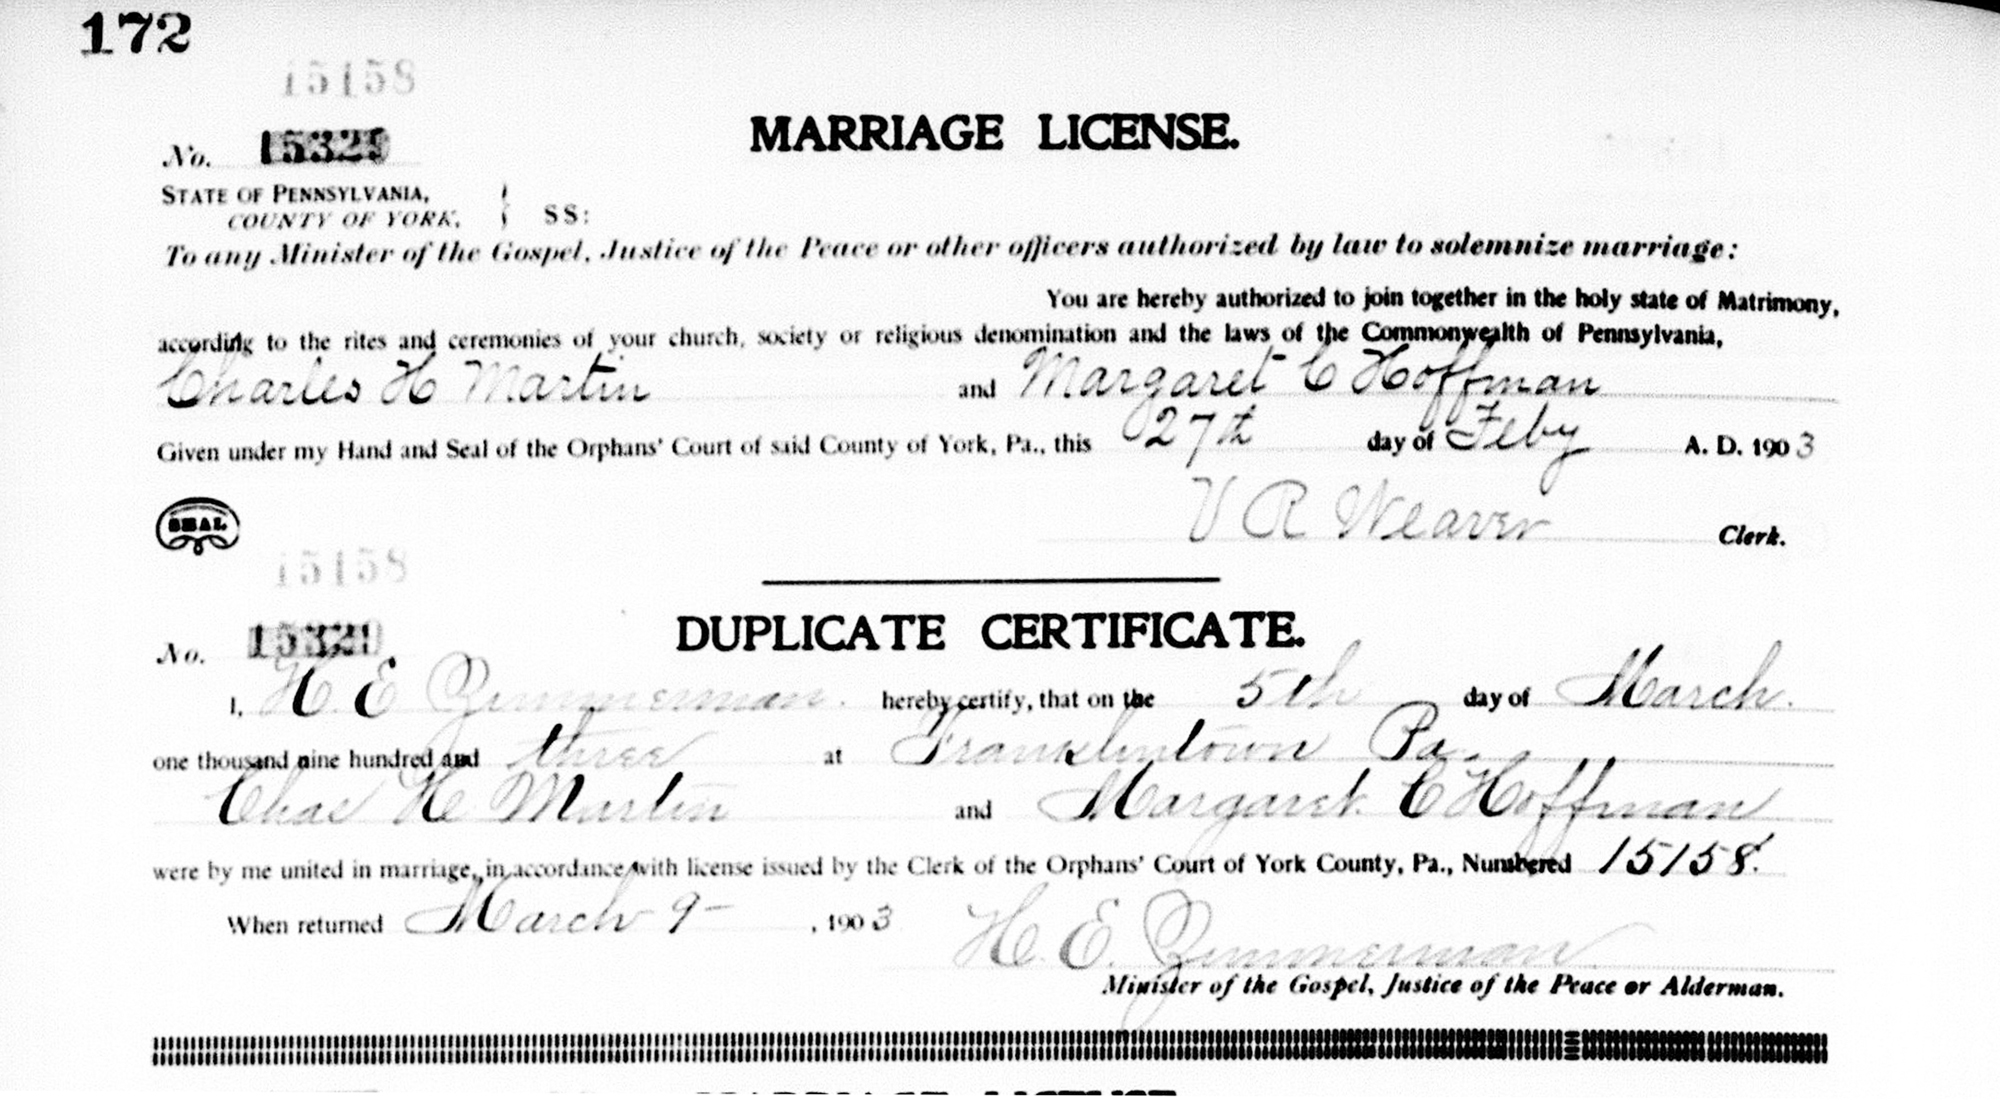 172
15158
MARRIAGE LICENSE.
No. 15329
STATE OF PENNSYLVANIA,
COUNTY OF YORK, } SS:
To any Minister of the Gospel, Justice of the Peace or other officers authorized by law to solemnize marriage:
You are hereby authorized to join together in the holy state of Matrimony,
according to the rites and ceremonies of your church, society or religious denomination and the laws of the Commonwealth of Pennsylvania,
Charles H Martin and Margaret C Hoffman
Given under my Hand and Seal of the Orphans' Court of said County of York, Pa., this 27th day of Feby A. D. 1903
SEAL
V R Weaver Clerk.
15158
DUPLICATE CERTIFICATE.
No. 15329
I, H E Zimmerman. hereby certify, that on the 5th day of March.
one thousand nine hundred and three at Franklintown Pa.
Chas H Martin and Margaret C Hoffman
were by me united in marriage, in accordance with license issued by the Clerk of the Orphans' Court of York County, Pa., Numbered 15158.
When returned March 9- , 1903
H. E. Zimmerman
Minister of the Gospel, Justice of the Peace or Alderman.